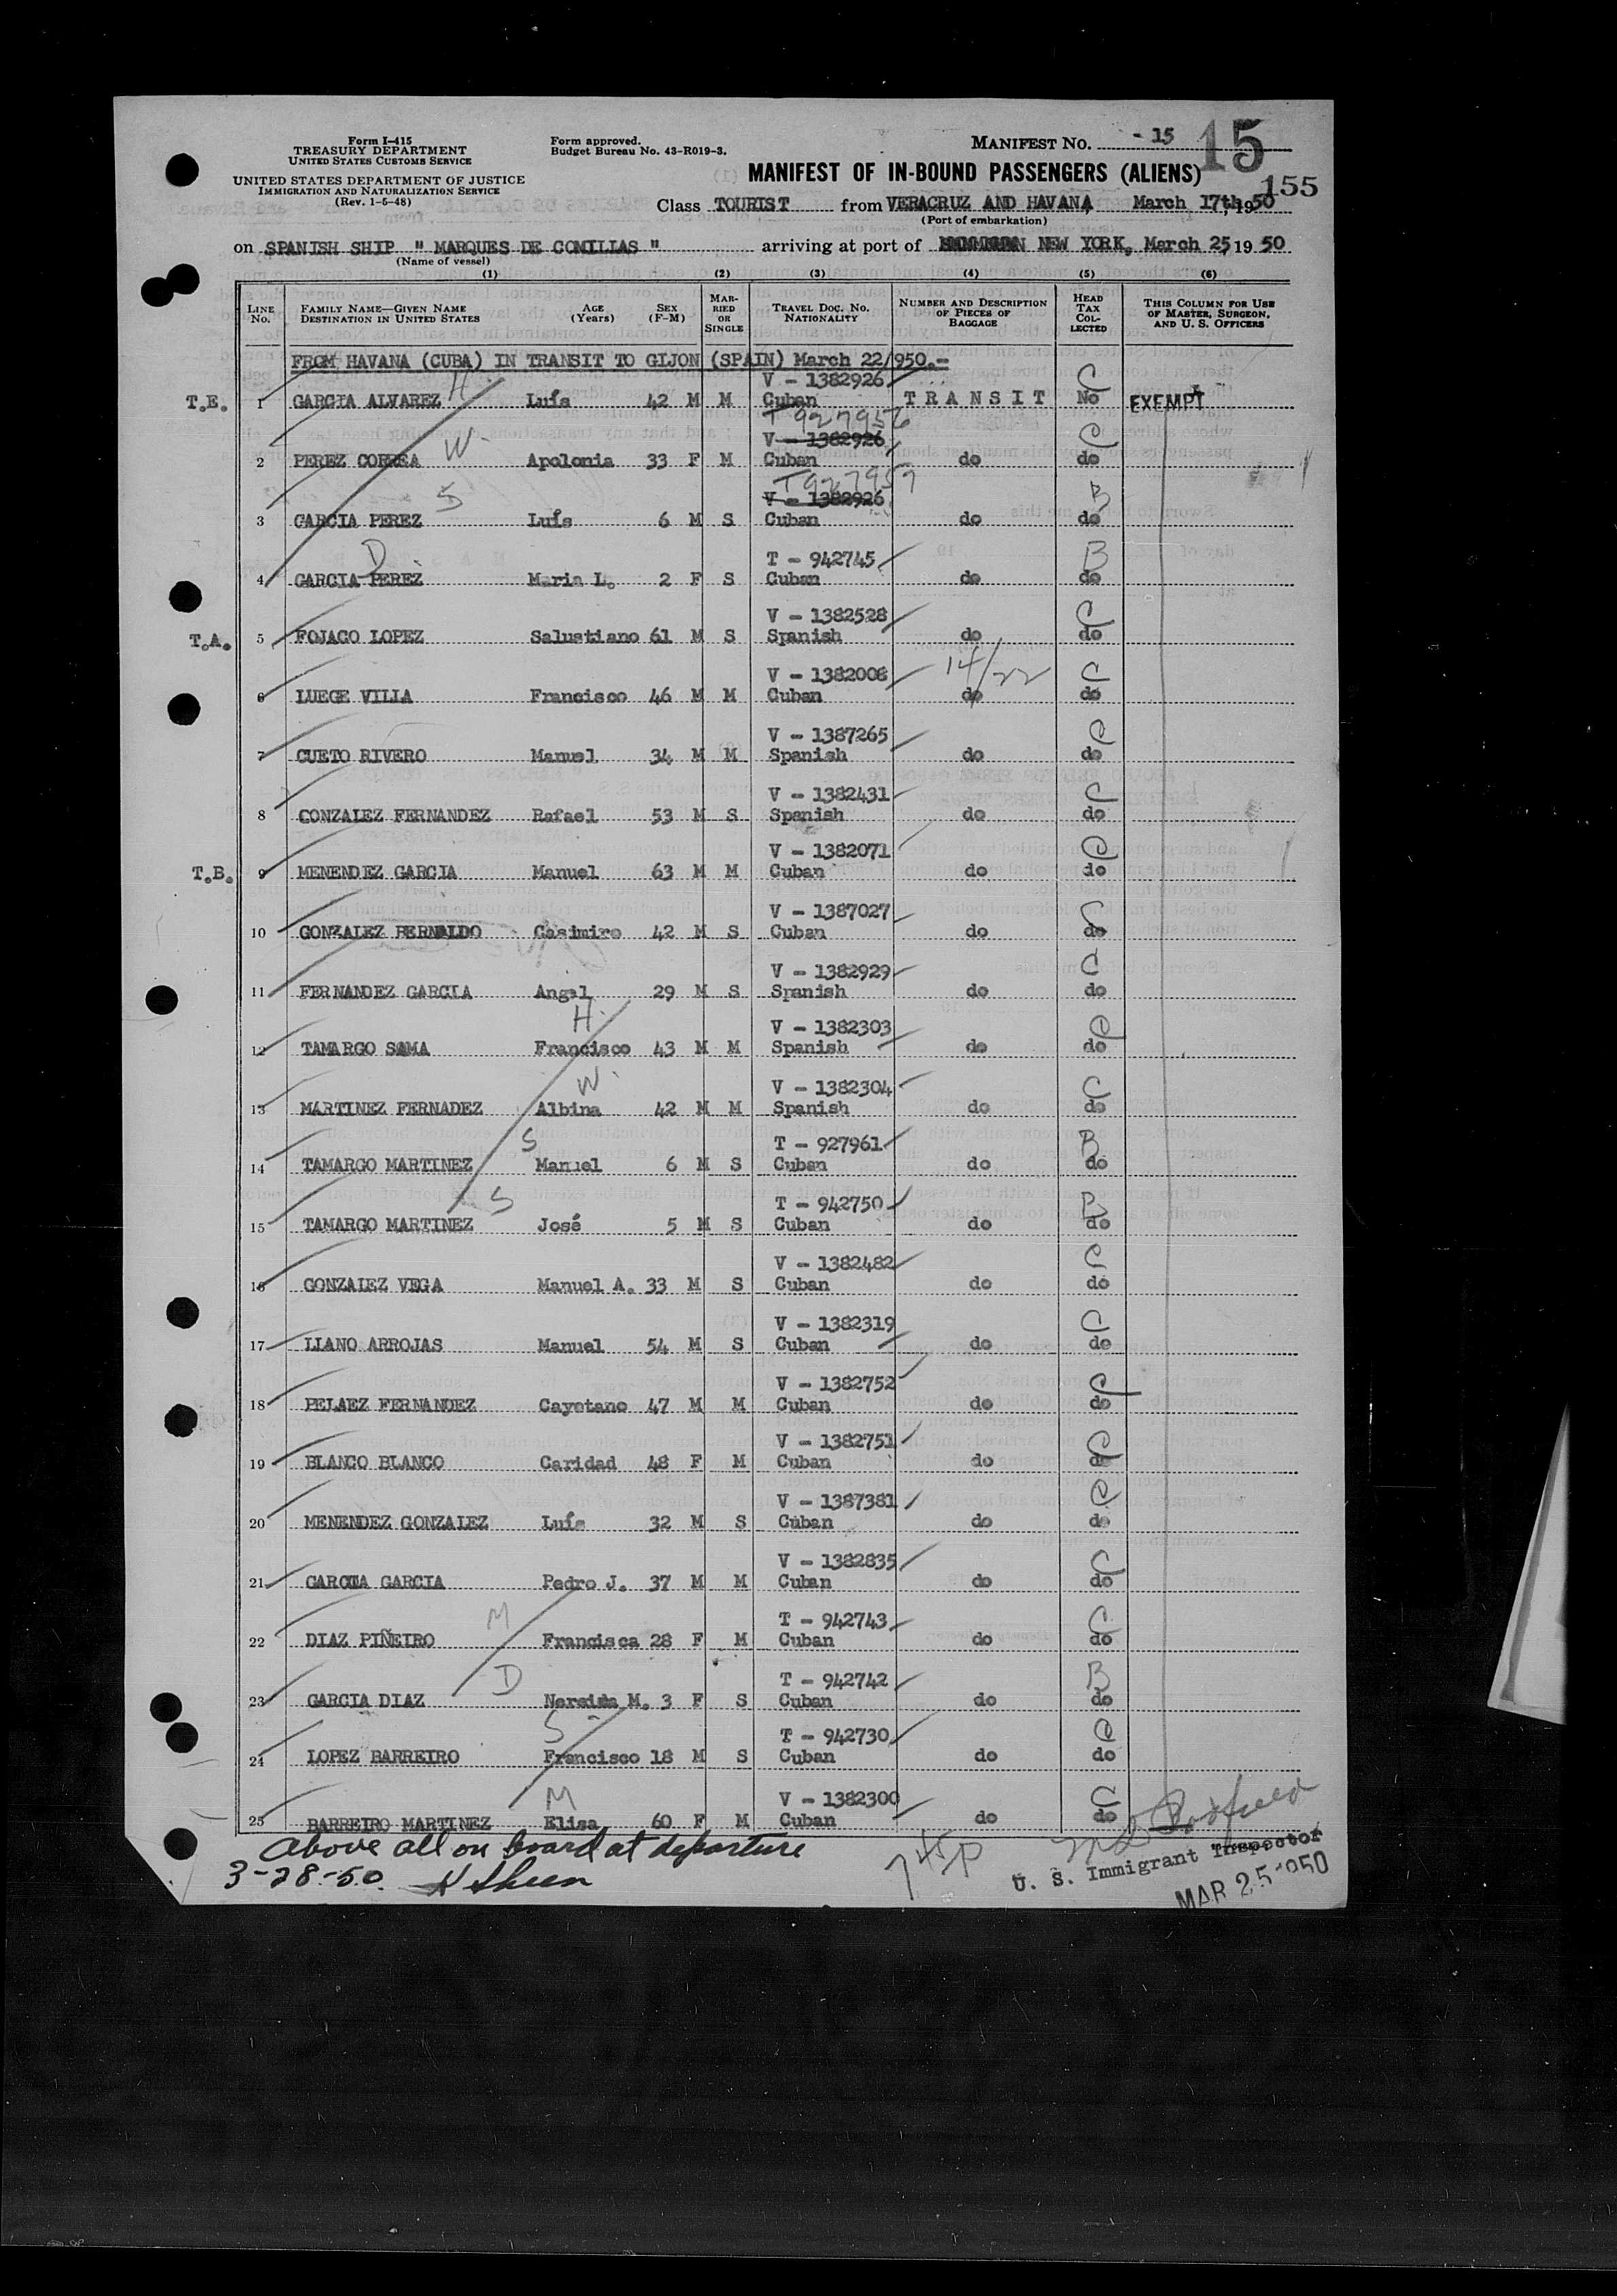 Form I-415
TREASURY DEPARTMENT
UNITED STATES CUSTOMS SERVICE
UNITED STATES DEPARTMENT OF JUSTICE
IMMIGRATION AND NATURALIZATION SERVICE
(Rev. 1-5-48)
Form approved.
Budget Bureau No. 43-R019-3.
MANIFEST No. - 15 15
MANIFEST OF IN-BOUND PASSENGERS (ALIENS)
155
Class TOURIST from VERACRUZ AND HAVANA March 17th, 1950
(Port of embarkation)
on SPANISH SHIP " MARQUES DE COMILLAS " arriving at port of NEW YORK, March 25, 19 50
(Name of vessel)
(1) (2) (3) (4) (5) (6)
LINE No. FAMILY NAME—GIVEN NAME DESTINATION IN UNITED STATES AGE (Years) SEX (F-M) MARRIED OR SINGLE TRAVEL DOC. NO. NATIONALITY NUMBER AND DESCRIPTION OF PIECES OF BAGGAGE HEAD TAX COLLECTED THIS COLUMN FOR USE OF MASTER, SURGEON, AND U. S. OFFICERS
FROM HAVANA (CUBA) IN TRANSIT TO GIJON (SPAIN) March 22/950.-
V - 1382926 C
T.E. 1 GARCIA ALVAREZ H Luís 42 M M Cuban TRANSIT No EXEMPT
T 927956
V - 1382926 C
2 PEREZ CORREA W Apolonia 33 F M Cuban do do
T 927957
V - 1382926 B
3 GARCIA PEREZ S Luís 6 M S Cuban do do
T - 942745 B
4 GARCIA PEREZ D Maria L. 2 F S Cuban do do
V - 1382528 C
T.A. 5 FOJACO LOPEZ Salustiano 61 M S Spanish do do
V - 1382008 14/22 C
6 LUEGE VILLA Francisco 46 M M Cuban do do
V - 1387265 C
7 CUETO RIVERO Manuel 34 M M Spanish do do
V - 1382431 C
8 GONZALEZ FERNANDEZ Rafael 53 M S Spanish do do
V - 1382071 C
T.B. 9 MENENDEZ GARCIA Manuel 63 M M Cuban do do
V - 1387027 C
10 GONZALEZ BERNALDO Casimiro 42 M S Cuban do do
V - 1382929 C
11 FERNANDEZ GARCIA Angel 29 M S Spanish do do
H V - 1382303 C
12 TAMARGO SAMA Francisco 43 M M Spanish do do
W V - 1382304 C
13 MARTINEZ FERNADEZ Albina 42 M M Spanish do do
S T - 927961 B
14 TAMARGO MARTINEZ Manuel 6 M S Cuban do do
S T - 942750 B
15 TAMARGO MARTINEZ José 5 M S Cuban do do
V - 1382482 C
16 GONZALEZ VEGA Manuel A. 33 M S Cuban do do
V - 1382319 C
17 LLANO ARROJAS Manuel 54 M S Cuban do do
V - 1382752 C
18 PELAEZ FERNANDEZ Cayetano 47 M M Cuban do do
V - 1382751 C
19 BLANCO BLANCO Caridad 48 F M Cuban do do
V - 1387381 C
20 MENENDEZ GONZALEZ Luís 32 M S Cuban do do
V - 1382835 C
21 GARCIA GARCIA Pedro J. 37 M M Cuban do do
M T - 942743 C
22 DIAZ PIÑEIRO Francisca 28 F M Cuban do do
D T - 942742 B
23 GARCIA DIAZ M. 3 F S Cuban do do
S T - 942730 C
24 LOPEZ BARREIRO Francisco 18 M S Cuban do do
M V - 1382300 C
25 BARREIRO MARTINEZ Elisa 60 F M Cuban do do
Above all on board at departure
3-28-50.
U. S. Immigrant Inspector
MAR 25 1950